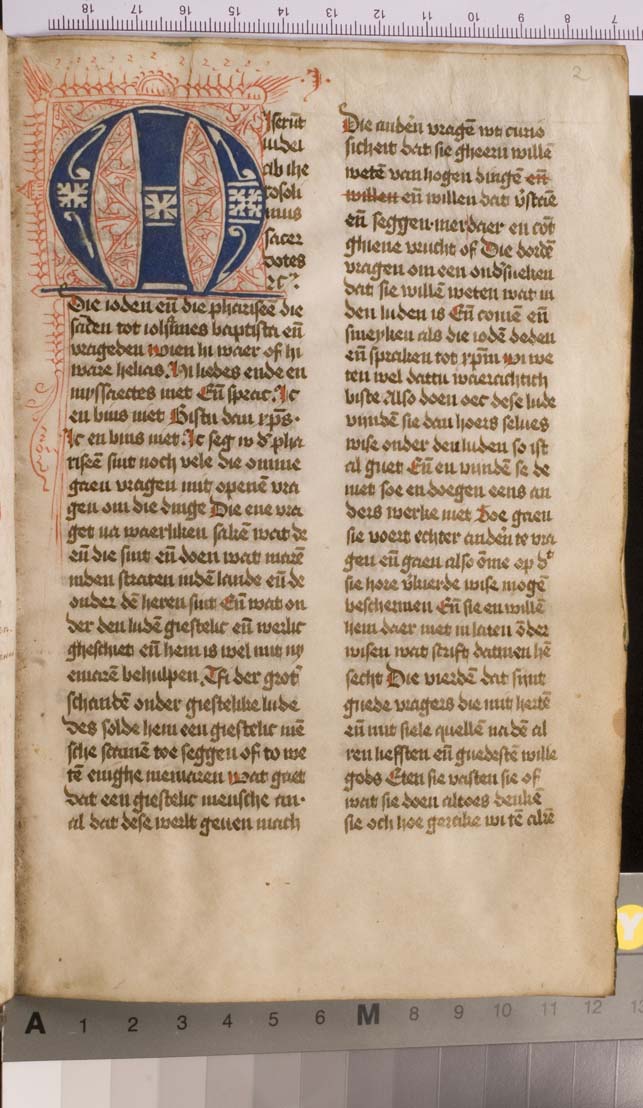 M
iserūt
iudei
ab ihe
rosoli
mis
sacer
dotes
zc̄.
Die ioden eñ die phariseē die
sādēn tot iohānes baptista eñ
vrageden wien hi waer of hi
ware helias. Hi liedes ende en
myssaectes niet Eñ sprac. Ic
en bius niet Bistu dan xp̄s.
Ic en bius niet. Ic seg w d' pha
riseē sint noch vele die omme
gaen vragen mit openē vra
gen om die dinge Die ene vra
get na waerliken sakē wat de
eñ die sint eñ doen wat marē
inden straten indē lande eñ de
onder dē heren sint Eñ wat on
der den ludē giestelic eñ werlic
ghesciet eñ hem is wel mit ny
emarē behulpen. Tfi der grot'
schandē onder giestelike lude
des solde hem een giestelic mē
sche scamē toe seggen of to we
tē enighe niemaren wat gaet
dat een giestelic mensche an.
al dat dese werlt geuen mach
Die anden vragē wt curio
sicheit dat sie gheern willē
wetē van hogen dingē eñ
willen eñ willen dat v'staē
eñ seggen. mer daer en cōt
ghiene vrucht of Die dordē
vragen om een ondsueken
dat sie willē weten wat in
den luden is Eñ comē eñ
smeyken als die iodē deden
eñ spraken tot xp̄m wi we
ten wel dattu waerachtich
biste Also doen oec dese lude
vijndē sie dan hoers selues
wise onder den luden so ist
al guet Eñ en vijndē se de
niet soe en doegen eens an
ders werke niet Soe gaen
sie voert echter anden te vra
gen eñ gaen also ōme op dt
sie hore v'kierde wise mogē
beschermen Eñ sie en willē
hem daer niet in laten ōder
wisen wat scrift datmen hē
secht Die vierdē dat sijnt
guede vragers die mit hertē
eñ mit siele quellē na dē al
ren liefsten eñ guedestē wille
gods Eten sie vasten sie of
wat sie doen altoes denkē
sie och hoe gerake wi tē alrē
2
18 17 16 15 14 13 12 11 10 9 8 7
A 1 2 3 4 5 6 M 8 9 10 11 12 13
Y